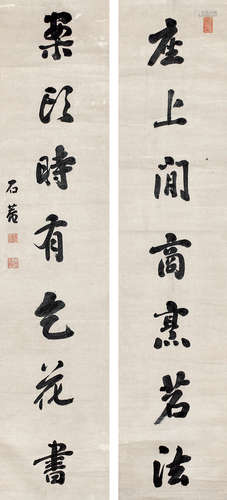 座上閒商烹茗法
案頭時有乞花書
石菴